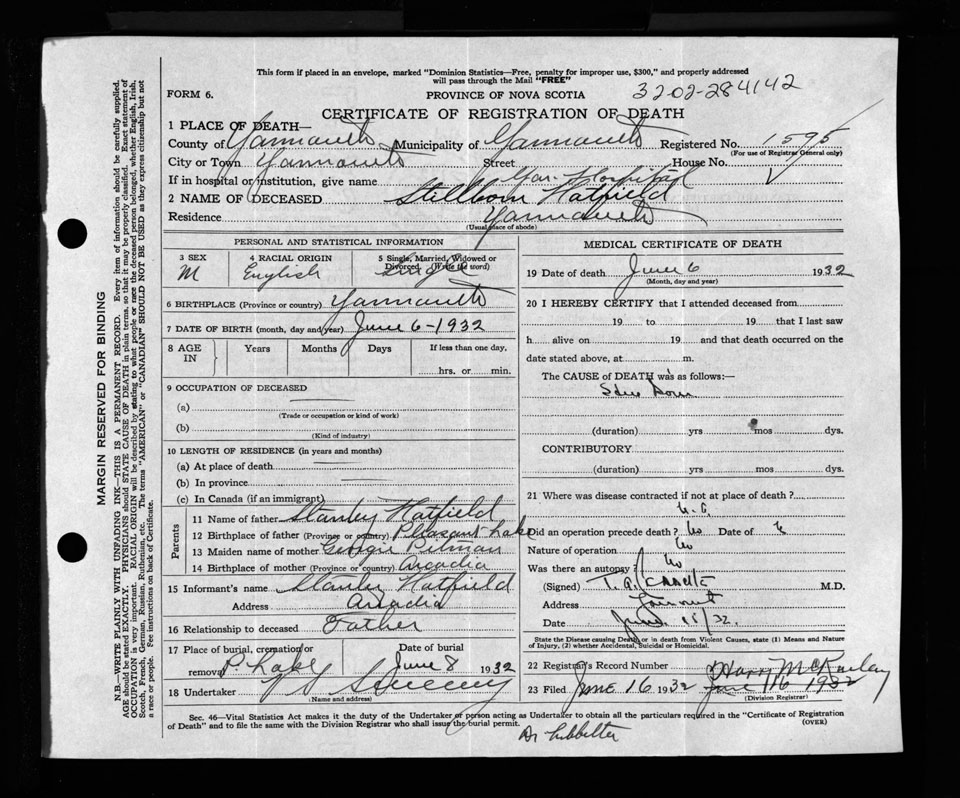 This form if placed in an envelope, marked "Dominion Statistics—Free, penalty for improper use, $300," and properly addressed
will pass through the Mail "FREE"
3202-284142
FORM 6.
PROVINCE OF NOVA SCOTIA
CERTIFICATE OF REGISTRATION OF DEATH
1 PLACE OF DEATH—
County of Yarmouth Municipality of Yarmouth Registered No. 1595
(For use of Registrar General only)
City or Town Yarmouth Street House No.
If in hospital or institution, give name Yar. Hospital
2 NAME OF DECEASED Stillborn Hatfield
Residence Yarmouth
(Usual place of abode)
PERSONAL AND STATISTICAL INFORMATION
3 SEX 4 RACIAL ORIGIN 5 Single, Married, Widowed or
Divorced (Write the word)
M English Single
6 BIRTHPLACE (Province or country) Yarmouth
7 DATE OF BIRTH (month, day and year) June 6-1932
8 AGE IN Years Months Days If less than one day,
hrs. or min.
9 OCCUPATION OF DECEASED
(a)
(Trade or occupation or kind of work)
(b)
(Kind of industry)
10 LENGTH OF RESIDENCE (in years and months)
(a) At place of death
(b) In province
(c) In Canada (if an immigrant)
Parents
11 Name of father Stanley Hatfield
12 Birthplace of father (Province or country) Pleasant Lake
13 Maiden name of mother Georgie Pitman
14 Birthplace of mother (Province or country) Arcadia
15 Informant's name Stanley Hatfield
Address Arcadia
16 Relationship to deceased Father
17 Place of burial, cremation or Date of burial
removal P. Lake June 8 1932
18 Undertaker Sweeny
(Name and address)
MEDICAL CERTIFICATE OF DEATH
19 Date of death June 6 1932
(Month, day and year)
20 I HEREBY CERTIFY that I attended deceased from
19 to 19 that I last saw
h alive on 19 and that death occurred on the
date stated above, at m.
The CAUSE of DEATH was as follows:—
Still Born
(duration) yrs mos dys.
CONTRIBUTORY
(duration) yrs mos dys.
21 Where was disease contracted if not at place of death?
Did an operation precede death? No Date of
Nature of operation No
Was there an autopsy? No
(Signed) T. A. M.D.
Address Yarmouth
Date June 15/32.
State the Disease causing Death, or in death from Violent Causes, state (1) Means and Nature
of Injury, (2) whether Accidental, Suicidal or Homicidal.
22 Registrar's Record Number
Harry McKinley
23 Filed June 16 1932 June 16 1932
(Division Registrar)
Sec. 46—Vital Statistics Act makes it the duty of the Undertaker or person acting as Undertaker to obtain all the particulars required in the "Certificate of Registration
of Death" and to file the same with the Division Registrar who shall issue the burial permit. (OVER)
Dr
MARGIN RESERVED FOR BINDING
N.B.—WRITE PLAINLY WITH UNFADING INK—THIS IS A PERMANENT RECORD. Every item of information should be carefully supplied.
AGE should be stated EXACTLY. PHYSICIANS should STATE CAUSE OF DEATH in plain terms, so that it may be properly classified. Exact statement of
OCCUPATION is very important. RACIAL ORIGIN will be described by stating to what people or race the deceased person belonged, whether English, Irish,
Scotch, French, German, Russian, Ruthenian, etc. The terms "AMERICAN" or "CANADIAN" SHOULD NOT BE USED as they express citizenship but not
a race or people. See instructions on back of Certificate.